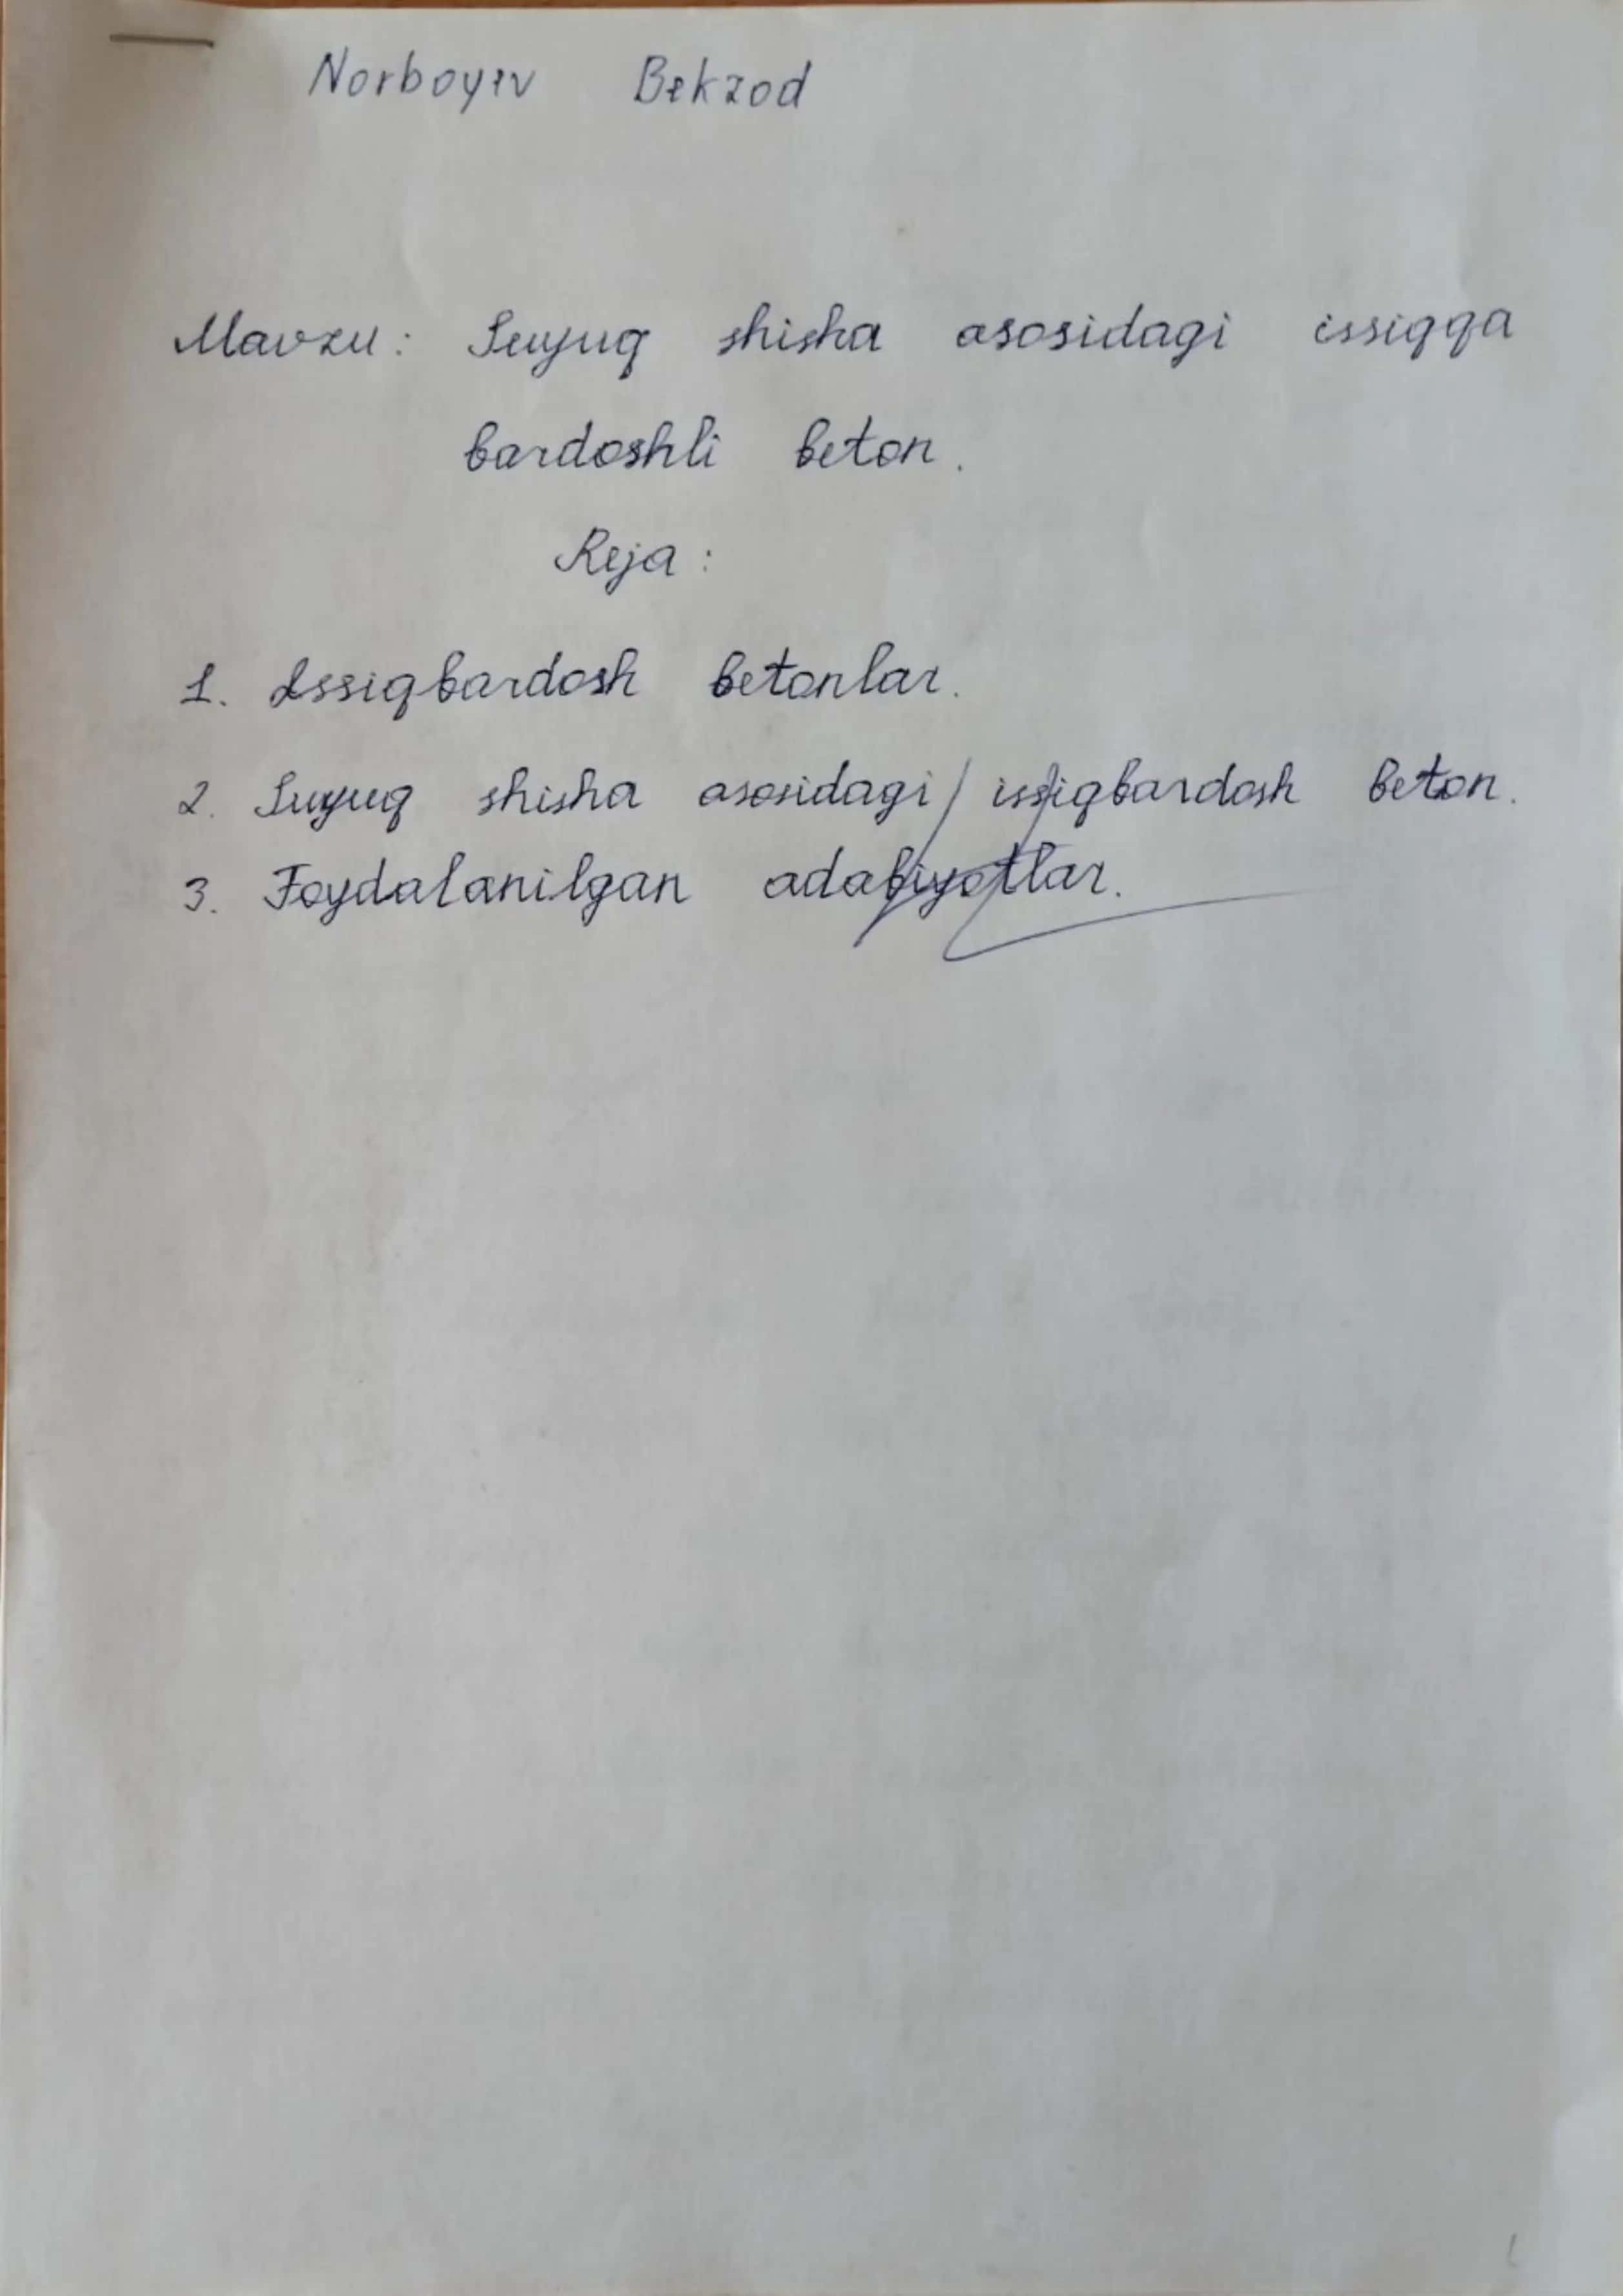 Norboyev Bekzod
Mavzu: Suyuq shisha asosidagi issiqqa
bardoshli beton.
Reja:
1. Issiqbardosh betonlar.
2. Suyuq shisha asosidagi issiqbardosh beton.
3. Foydalanilgan adabiyotlar.